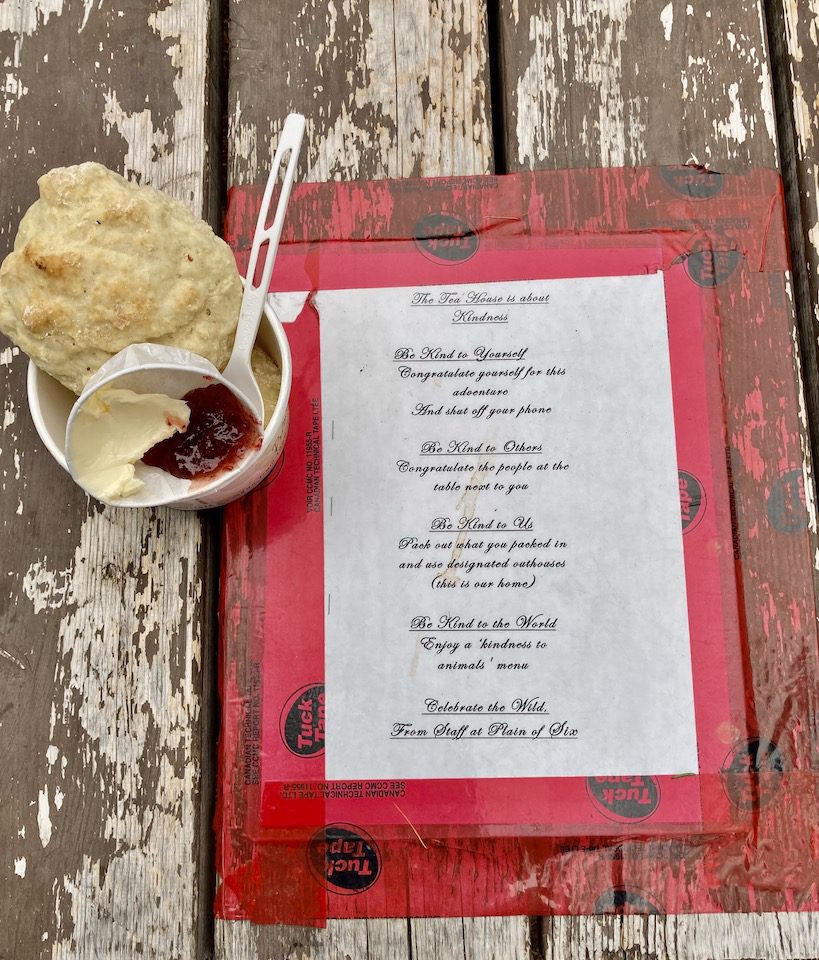 The Tea House is about
Kindness
Be Kind to Yourself
Congratulate yourself for this
adventure
And shut off your phone
Be Kind to Others
Congratulate the people at the
table next to you
Be Kind to Us
Pack out what you packed in
and use designated outhouses
(this is our home)
Be Kind to the World
Enjoy a 'kindness to
animals' menu
Celebrate the Wild,
From Staff at Plain of Six
Tuck
Tape
Tuck
Tape
Tuck
Tape
Tuck
Tape
Tuck
Tape
CANADIAN TECHNICAL TAPE LTD.
SEE CCMC REPORT NO. 11955-R
VOIR CCMC NO. 11955-R
CANADIAN TECHNICAL TAPE LTÉE